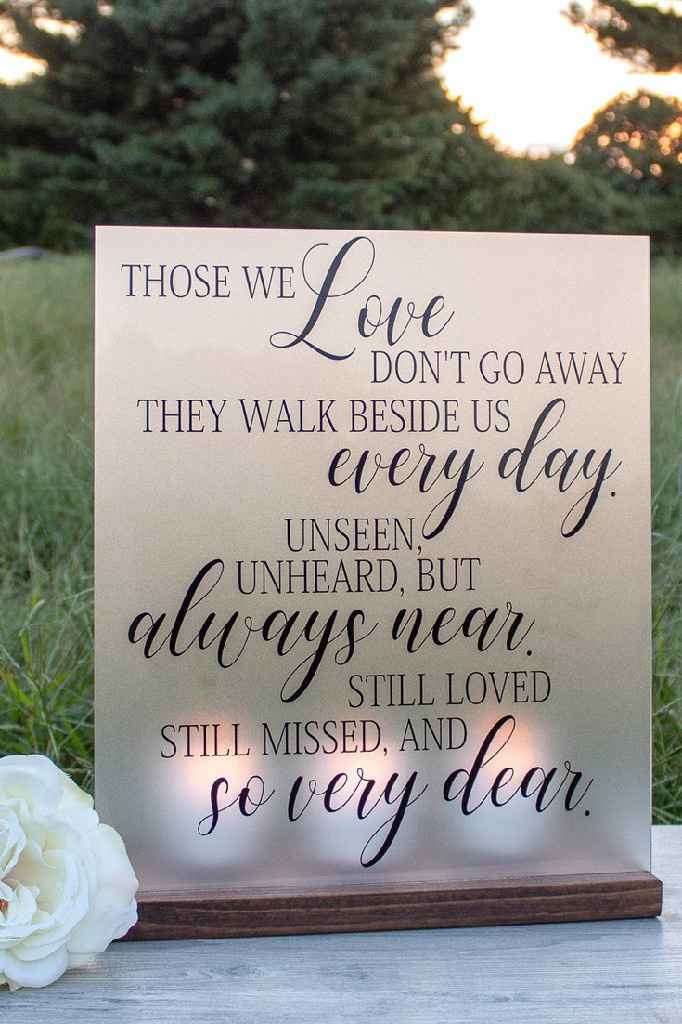 THOSE WE Love
DON'T GO AWAY
THEY WALK BESIDE US
every day.
UNSEEN,
UNHEARD, BUT
always near.
STILL LOVED
STILL MISSED, AND
so very dear.